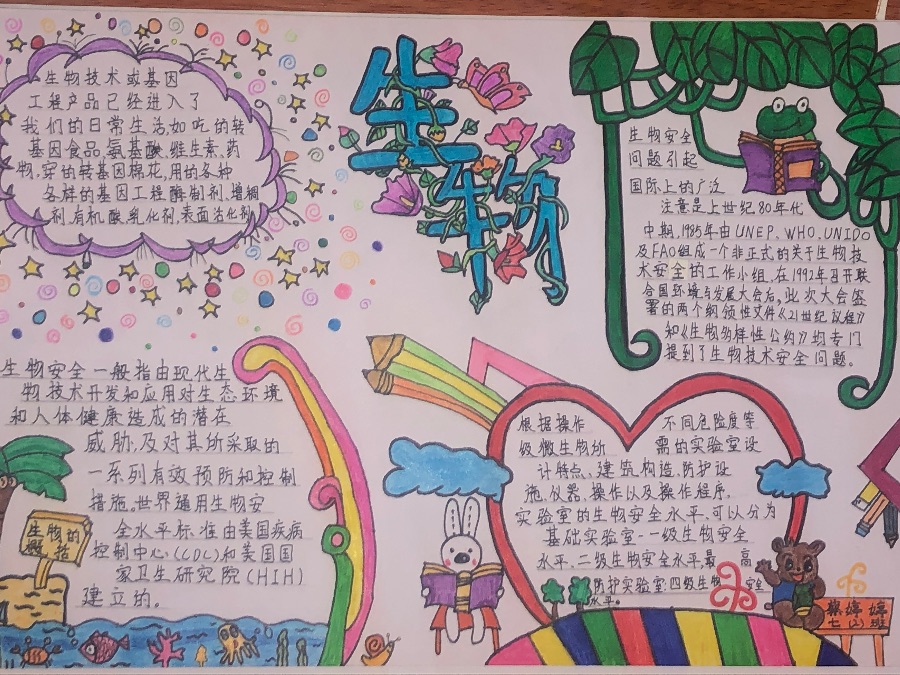 生物
生物技术或基因
工程产品已经进入了
我们的日常生活,如吃的转
基因食品,氨基酸、维生素、药
物,穿的转基因棉花,用的各种
各样的基因工程酶制剂、增稠
剂、有机酸、乳化剂、表面活化剂
生物安全
问题引起
国际上的广泛
注意是上世纪80年代
中期,1985年由UNEP、WHO、UNIDO
及FAO组成一个非正式的关于生物技
术安全的工作小组,在1992年召开联
合国环境与发展大会后,此次大会签
署的两个纲领性文件《21世纪议程》
和《生物多样性公约》均专门
提到了生物技术安全问题。
生物安全一般指由现代生
物技术开发和应用对生态环境
和人体健康造成的潜在
威胁,及对其所采取的
一系列有效预防和控制
措施。世界通用生物安
全水平标准由美国疾病
控制中心(CDC)和美国国
家卫生研究院(HIH)
建立的。
生物的
根据操作 不同危险度等
级微生物所 需的实验室设
计特点、建筑构造、防护设
施、仪器、操作以及操作程序,
实验室的生物安全水平,可以分为
基础实验室-一级生物安全
水平、二级生物安全水平最 高
防护实验室:四级生物 安全
水平。
婷婷
七(2)班